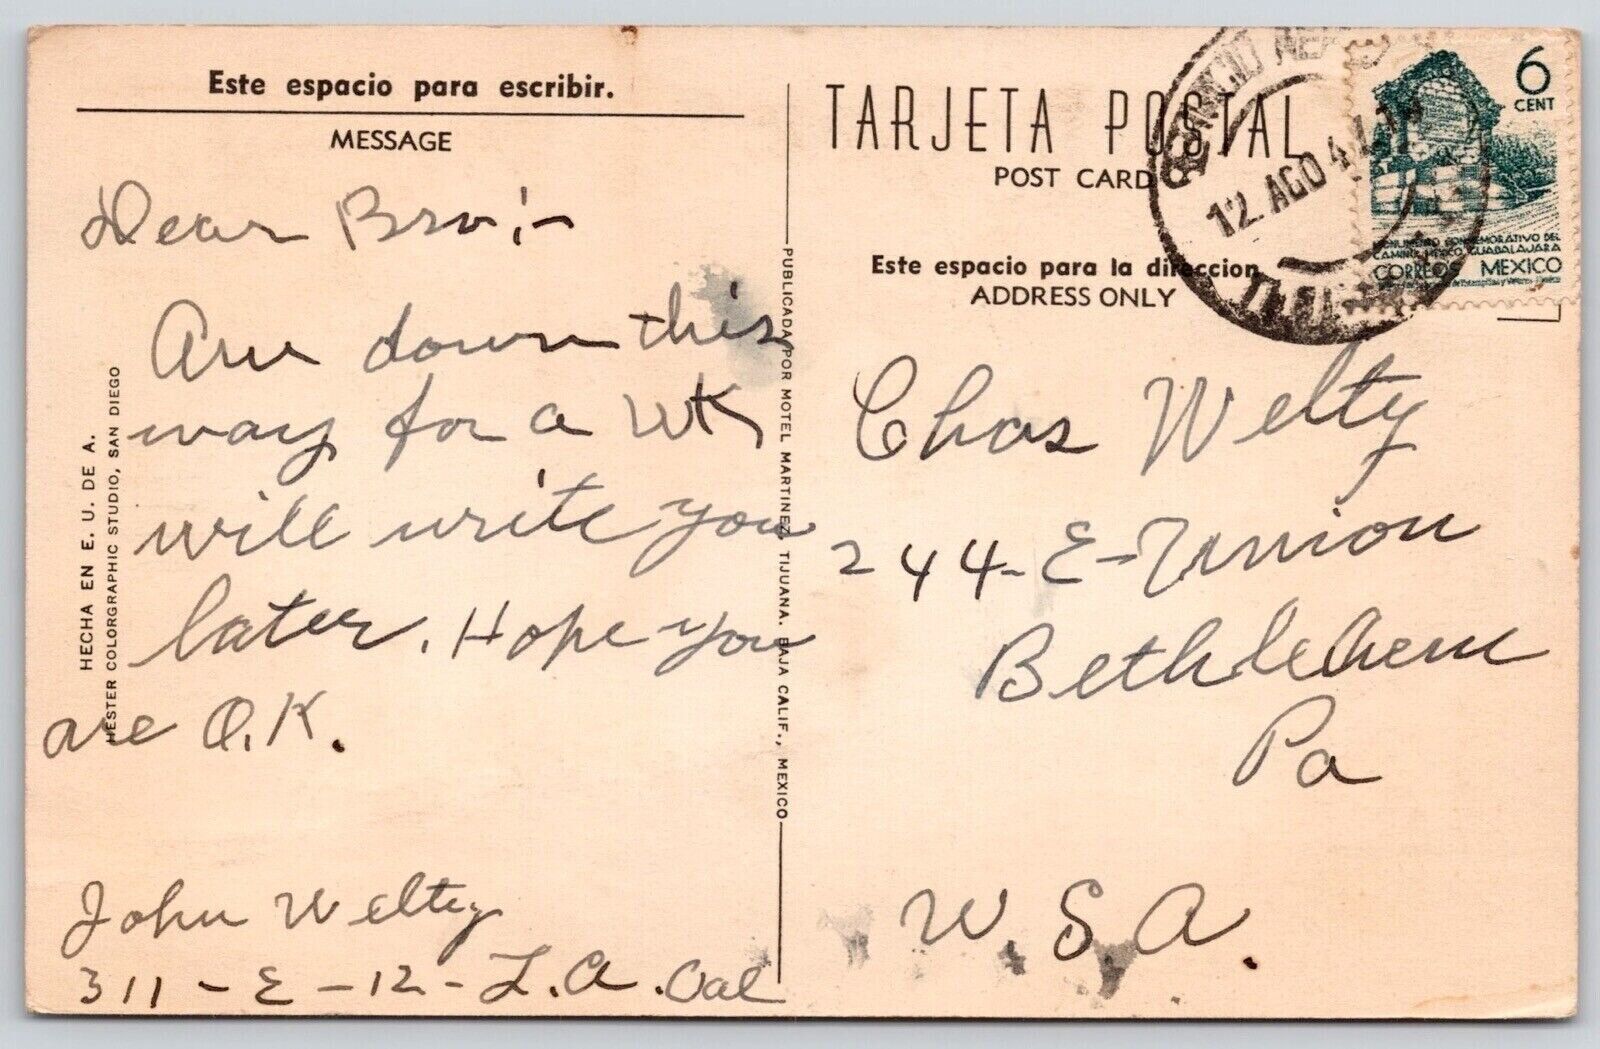 Este espacio para escribir.
MESSAGE
Dear Bro;-
Am down this
way for a WK
will write you
later. Hope you
are O.K.
John Welty
311-E-12-L.A. Cal
HECHA EN E. U. DE A.
HESTER COLORGRAPHIC STUDIO, SAN DIEGO
PUBLICADA POR MOTEL MARTINEZ, TIJUANA. BAJA CALIF., MEXICO
TARJETA POSTAL
POST CARD
Este espacio para la direccion
ADDRESS ONLY
12 AGO 47
6
CENT
MONUMENTO CONMEMORATIVO DEL
CAMINO MEXICO GUADALAJARA
CORREOS MEXICO
Chas Welty
244-E-Union
Bethlehem
Pa
U.S.A.